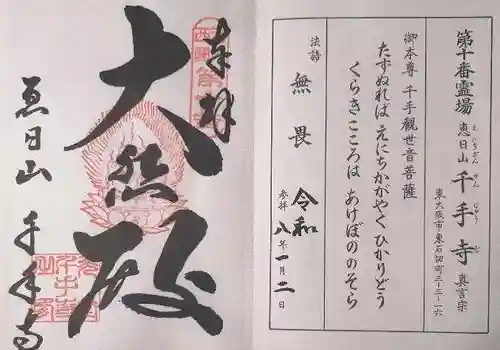 第十番霊場 恵日山 千手寺 真言宗
えにちさん せんじゅじ
東大阪市・東石切町三-三-一六
御本尊 千手觀世音菩薩
たずぬれば えにちかがやく ひかりどう
くらきこころは あけぼののそら
法語 無畏
参拝 令和八年一月二日
奉拝
大悲殿
恵日山 千手寺